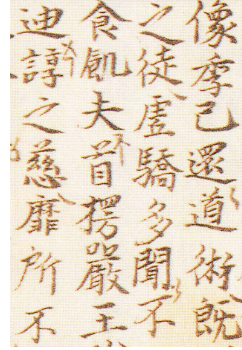 像季已還道術既
之徒虛驕多聞不
食飢夫首楞嚴王
迪諄之慈靡所不